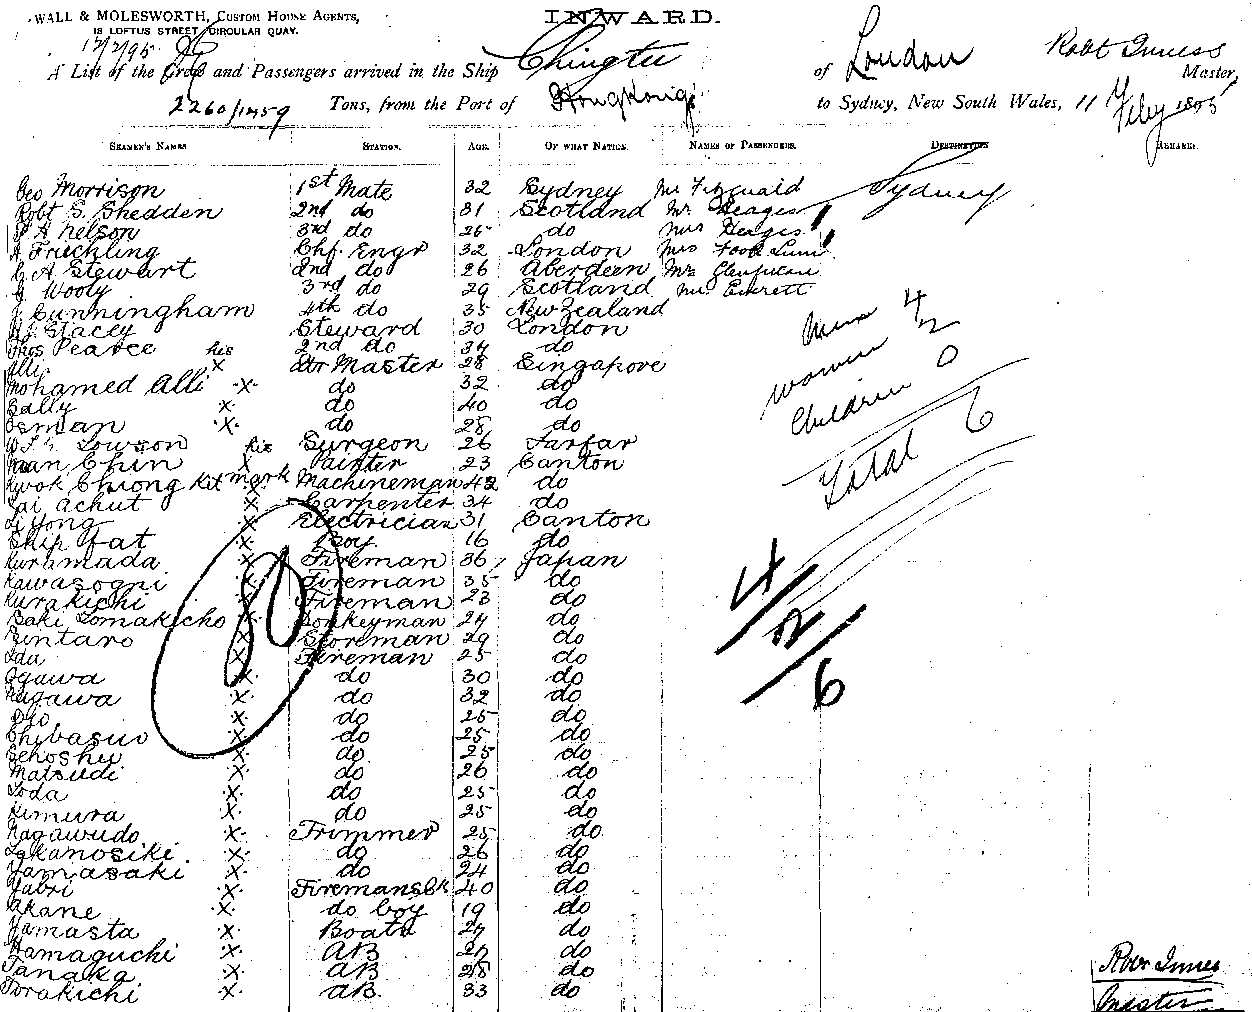 WALL & MOLESWORTH, CUSTOM HOUSE AGENTS,
18 LOFTUS STREET, CIRCULAR QUAY.
INWARD.
A List of the Crew and Passengers arrived in the Ship Chingtu of London Robt Inness Master,
2260/1459 Tons, from the Port of HongKong to Sydney, New South Wales, 11 Feby 1895
SEAMEN'S NAMES STATION. AGE. OF WHAT NATION. NAMES OF PASSENGERS. DESTINATION REMARKS.
Geo Morrison 1st Mate 32 Sydney Mr Fitzgerald Sydney
Robt S. Shedden 2nd do 31 Scotland Mr
Nelson 3rd do 26 do Mrs
A Friechling Chf. Engr 32 London Mrs
A Stewart 2nd do 26 Aberdeen Mr
Wooly 3rd do 29 Scotland Mr. Everett
J Cunningham 4th do 35 New Zealand
Stacey Steward 30 London
Thos Pearce his 2nd do 34 do
Alli X Master 28 Singapore
Mohamed Alli X do 32 do
Sally X do 40 do
Osman X do 28 do
Lowson his Surgeon 26 Farfar
Chin X Painter 23 Canton
Kwok Chiong Kit mark X Machineman 42 do
Lai Achut X Carpenter 34 do
Li Yong X Electrician 31 Canton
Ship Fat X Boy 16 do
Kuramada X Fireman 36 Japan
Kawasogni X Fireman 35 do
Kurakichi X Fireman 23 do
Saki Tomakicho X Donkeyman 27 do
Sintaro X Storeman 29 do
Ida X Fireman 25 do
Ogawa X do 30 do
X do 32 do
X do 25 do
Chibasui X do 25 do
Sehoshu X do 25 do
Matsudi X do 26 do
Toda X do 25 do
Kimura X do 25 do
Nagawudo X Trimmer 25 do
Takanosiki X do 26 do
Yamasaki X do 24 do
Yabri X Firemans Ck 40 do
Akane X do boy 19 do
Yamasta X Boats 27 do
Hamaguchi X AB 27 do
Tanaka X AB 28 do
Torakichi X AB. 33 do
Men 4
Women 2
Children 0
Total 6
4/2/6
80
Robt Innes
Master